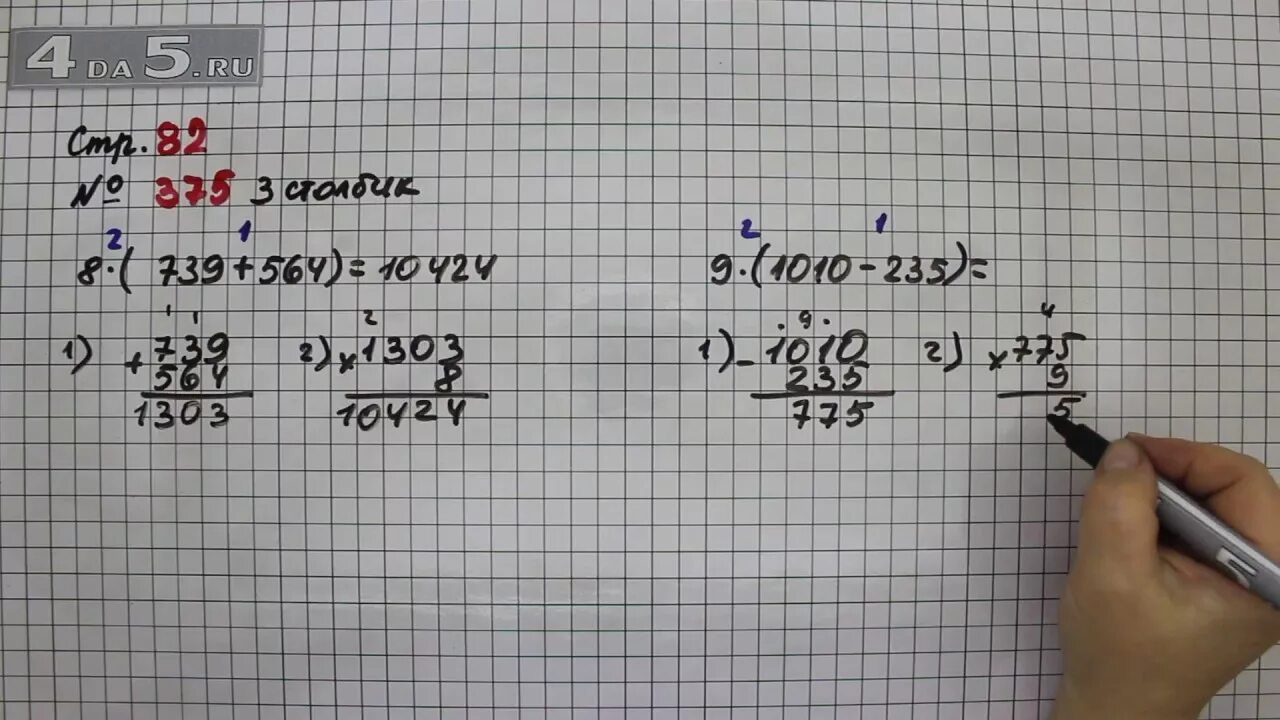 4DA5.RU
Стр. 82
№ 375 3 столбик
2 1
8·(739+564)=10424
1 1
1) +739
564
1303
2
2) ×1303
8
10424
2 1
9·(1010-235)=
. 9 .
1) -1010
235
775
4
2) ×775
9
5